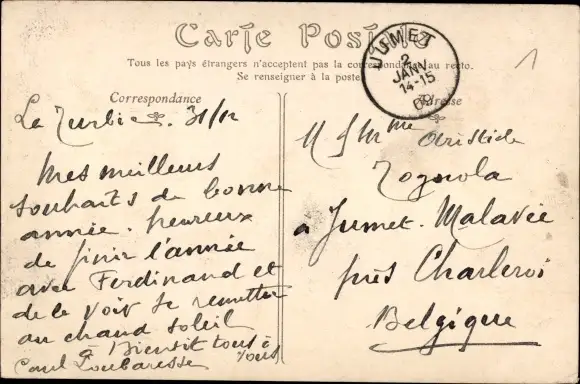 Carte Postale
Tous les pays étrangers n'acceptent pas la correspondance au recto.
Se renseigner à la poste
JUMET
2
JANV
14-15
09
1
Correspondance
Adresse
La Turbie. 31/12
Mes meilleurs
souhaits de bonne
année. heureux
de finir l'année
avec Ferdinand et
de le voir se remettre
au chaud soleil
à Bientôt tous à
vous
Paul Loubaresse
M & Mme Aristide
Tognola
à Jumet. Malavée
près Charleroi
Belgique